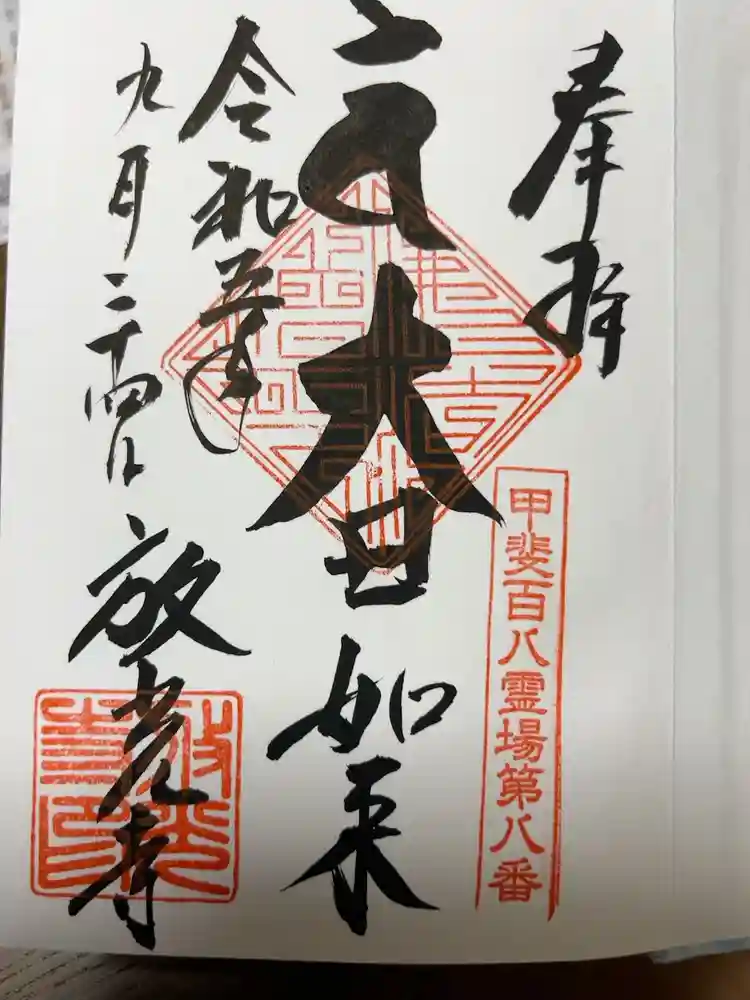 奉拝
甲斐百八霊場第八番
大日如来
令和五年
九月二十四日
放光寺